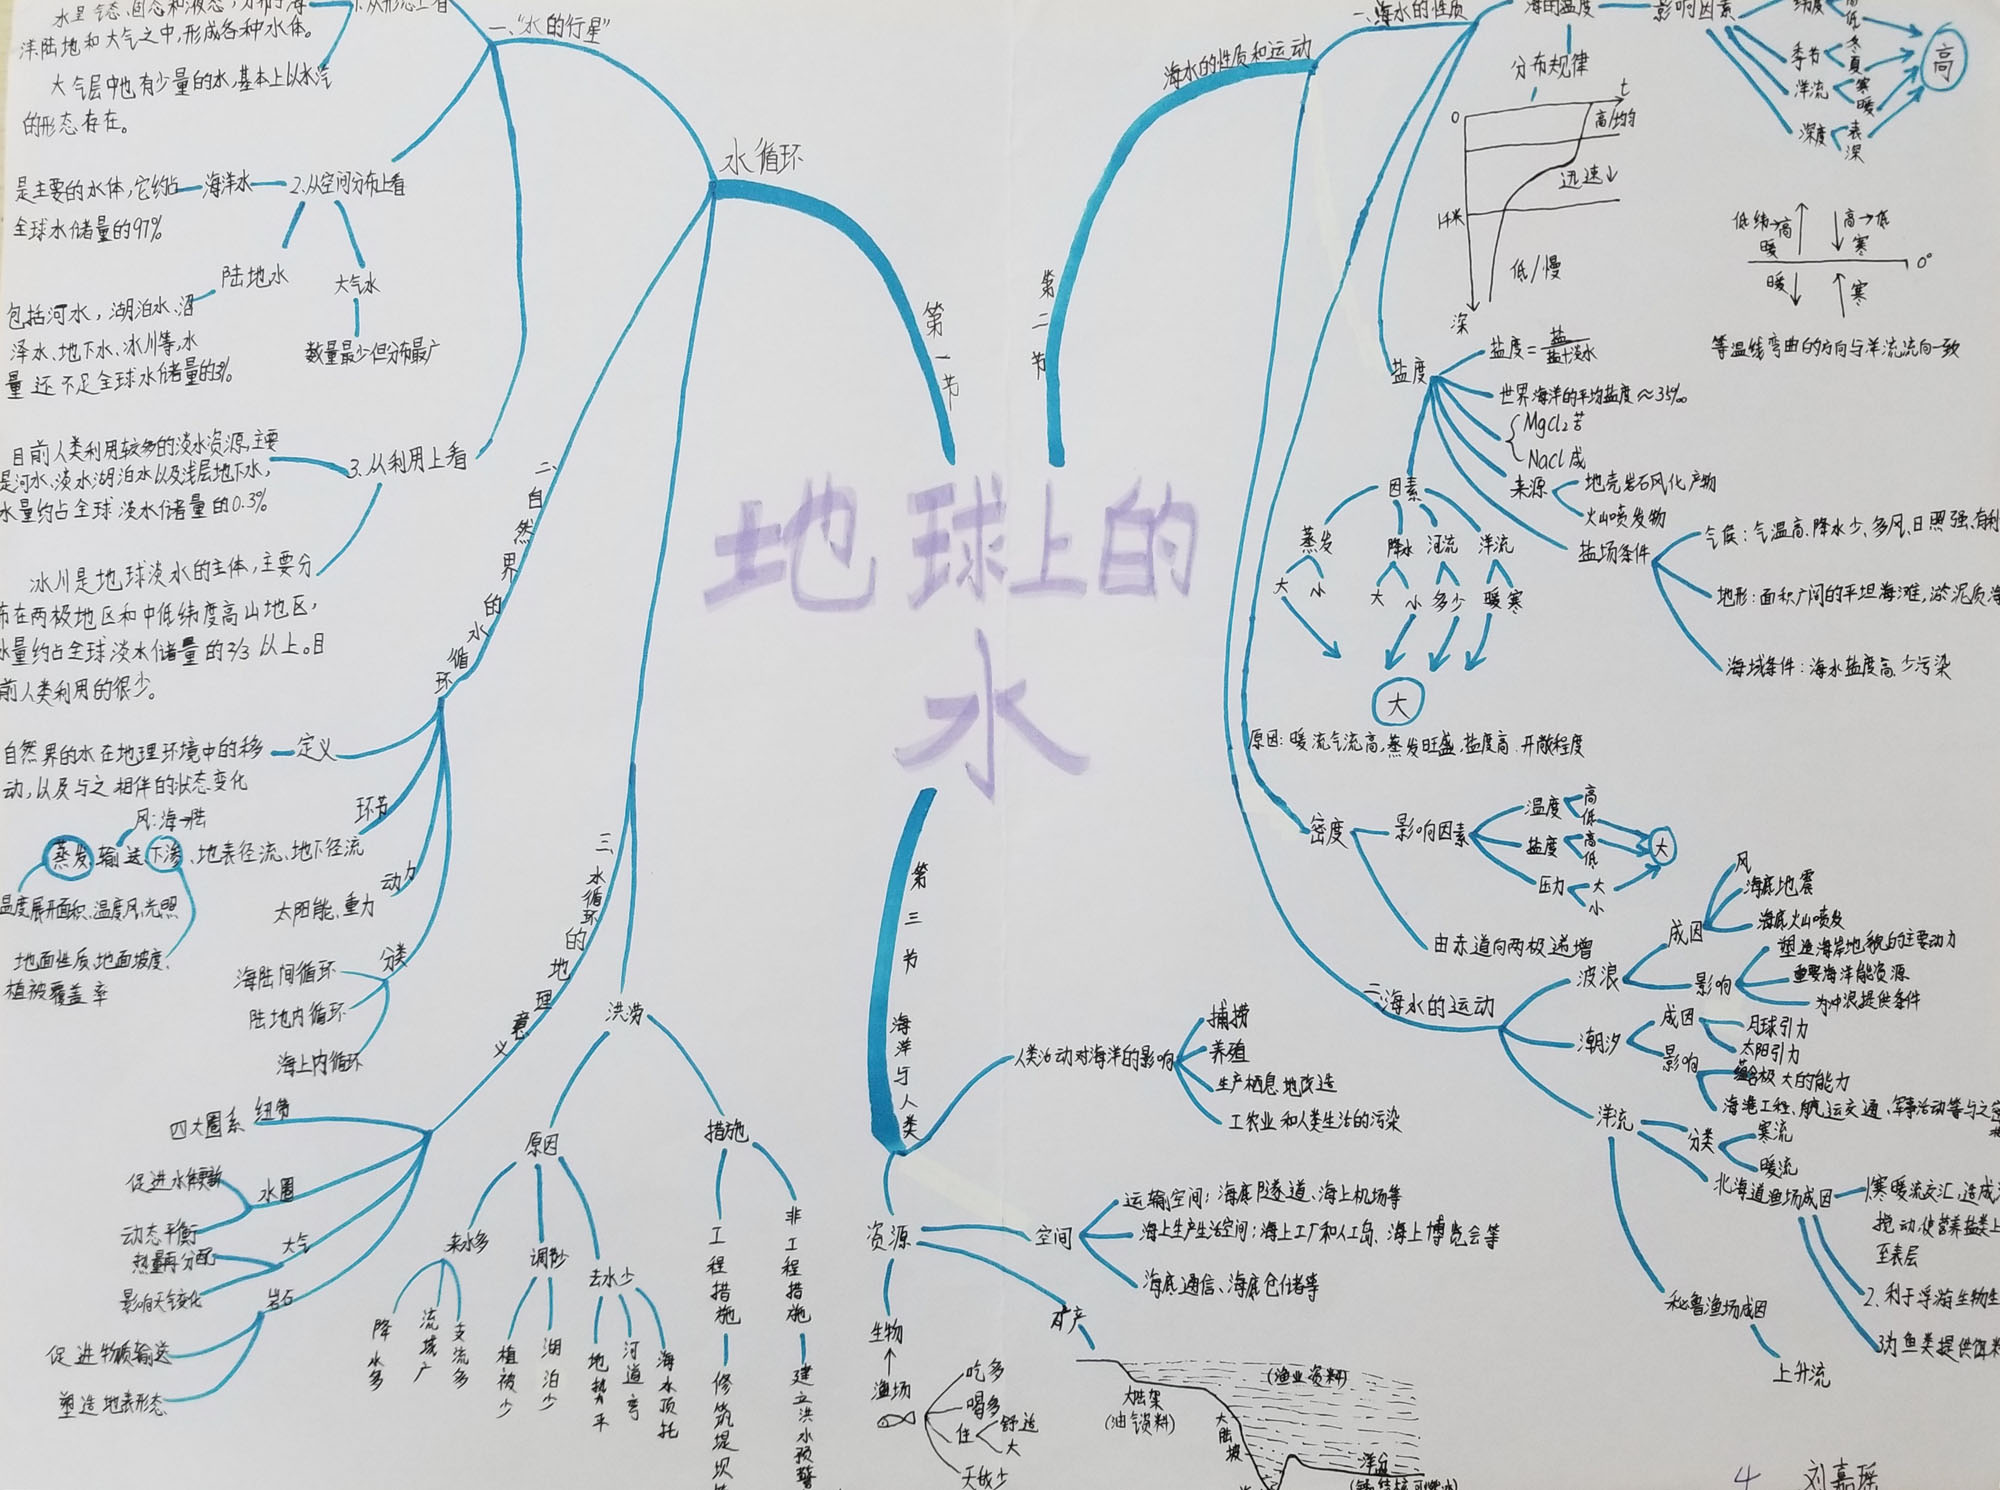 地球上的
水
第一节
水循环
一、“水的行星”
水呈气态、固态和液态,分布于海
洋陆地和大气之中,形成各种水体。
大气层中也有少量的水,基本上以水汽
的形态存在。
2.从空间分布上看
海洋水
是主要的水体,它约占
全球水储量的97%
陆地水
包括河水,湖泊水、沼
泽水、地下水、冰川等,水
量还不足全球水储量的3%。
大气水
数量最少但分布最广
3.从利用上看
目前人类利用较多的淡水资源,主要
是河水、淡水湖泊水以及浅层地下水,
水量约占全球淡水储量的0.3%
冰川是地球淡水的主体,主要分
布在两极地区和中低纬度高山地区,
水量约占全球淡水储量的2/3以上。目
前人类利用的很少。
二、自然界的水循环
定义
自然界的水在地理环境中的移
动,以及与之相伴的状态变化
环节
风:海→陆
蒸发、输送、下渗、地表径流、地下径流
温度展开面积、温度风,光照
地面性质、地面坡度、
植被覆盖率
动力
太阳能、重力
分类
海陆间循环
陆地内循环
海上内循环
三、水循环的地理意义
四大圈系 纽带
水圈
促进水体更新
动态平衡
大气
热量再分配
影响天气变化
岩石
促进物质输送
塑造地表形态
洪涝
原因
来水多
降水多
流域广
支流多
调形少
植被少
湖泊少
去水少
地势平
河道弯
海水顶托
措施
工程措施
修筑堤坝
非工程措施
建立洪水预警
第二节
海水的性质和运动
一、海水的性质
海的温度
影响因素
纬度 高 低
季节 冬 夏
洋流 寒 暖
深度 表 深
高
分布规律
0
t
高/均匀
迅速↓
1千米
低/慢
深
低纬→高
暖
高→低
寒
0°
暖
寒
等温线弯曲的方向与洋流流向一致
盐度
盐度=盐/盐+淡水
世界海洋的平均盐度≈35‰
MgCl2苦
NaCl咸
来源
地壳岩石风化产物
火山喷发物
盐场条件
气候:气温高、降水少、多风、日照强、有利
地形:面积广阔的平坦海滩,淤泥质海
海域条件:海水盐度高、少污染
因素
蒸发 降水 河流 洋流
大 小 大 小 多 少 暖 寒
大
原因:暖流气流高,蒸发旺盛,盐度高.开敞程度
密度
影响因素
温度 高 低
盐度 高 低
压力 大 小
大
由赤道向两极递增
二、海水的运动
波浪
成因
风
海底地震
海底火山喷发
影响
塑造海岸地貌的主要动力
重要海洋能资源
为冲浪提供条件
潮汐
成因
月球引力
太阳引力
影响
蕴含极大的能力
海港工程、航运交通、军事活动等与之密
洋流
分类
寒流
暖流
北海道渔场成因
1.寒暖流交汇,造成海
搅动,使营养盐类上
至表层
2.利于浮游生物生
3为鱼类提供饵料
秘鲁渔场成因
上升流
第三节
海洋与人类
人类活动对海洋的影响
捕捞
养殖
生产栖息地改造
工农业和人类生活的污染
资源
空间
运输空间:海底隧道、海上机场等
海上生产生活空间:海上工厂和人工岛、海上博览会等
海底通信、海底仓储等
矿产
大陆架
(油气资料)
大陆坡
(渔业资料)
洋盆
生物
渔场
吃多
喝多
住
舒适
大
天敌少
4 刘嘉瑶